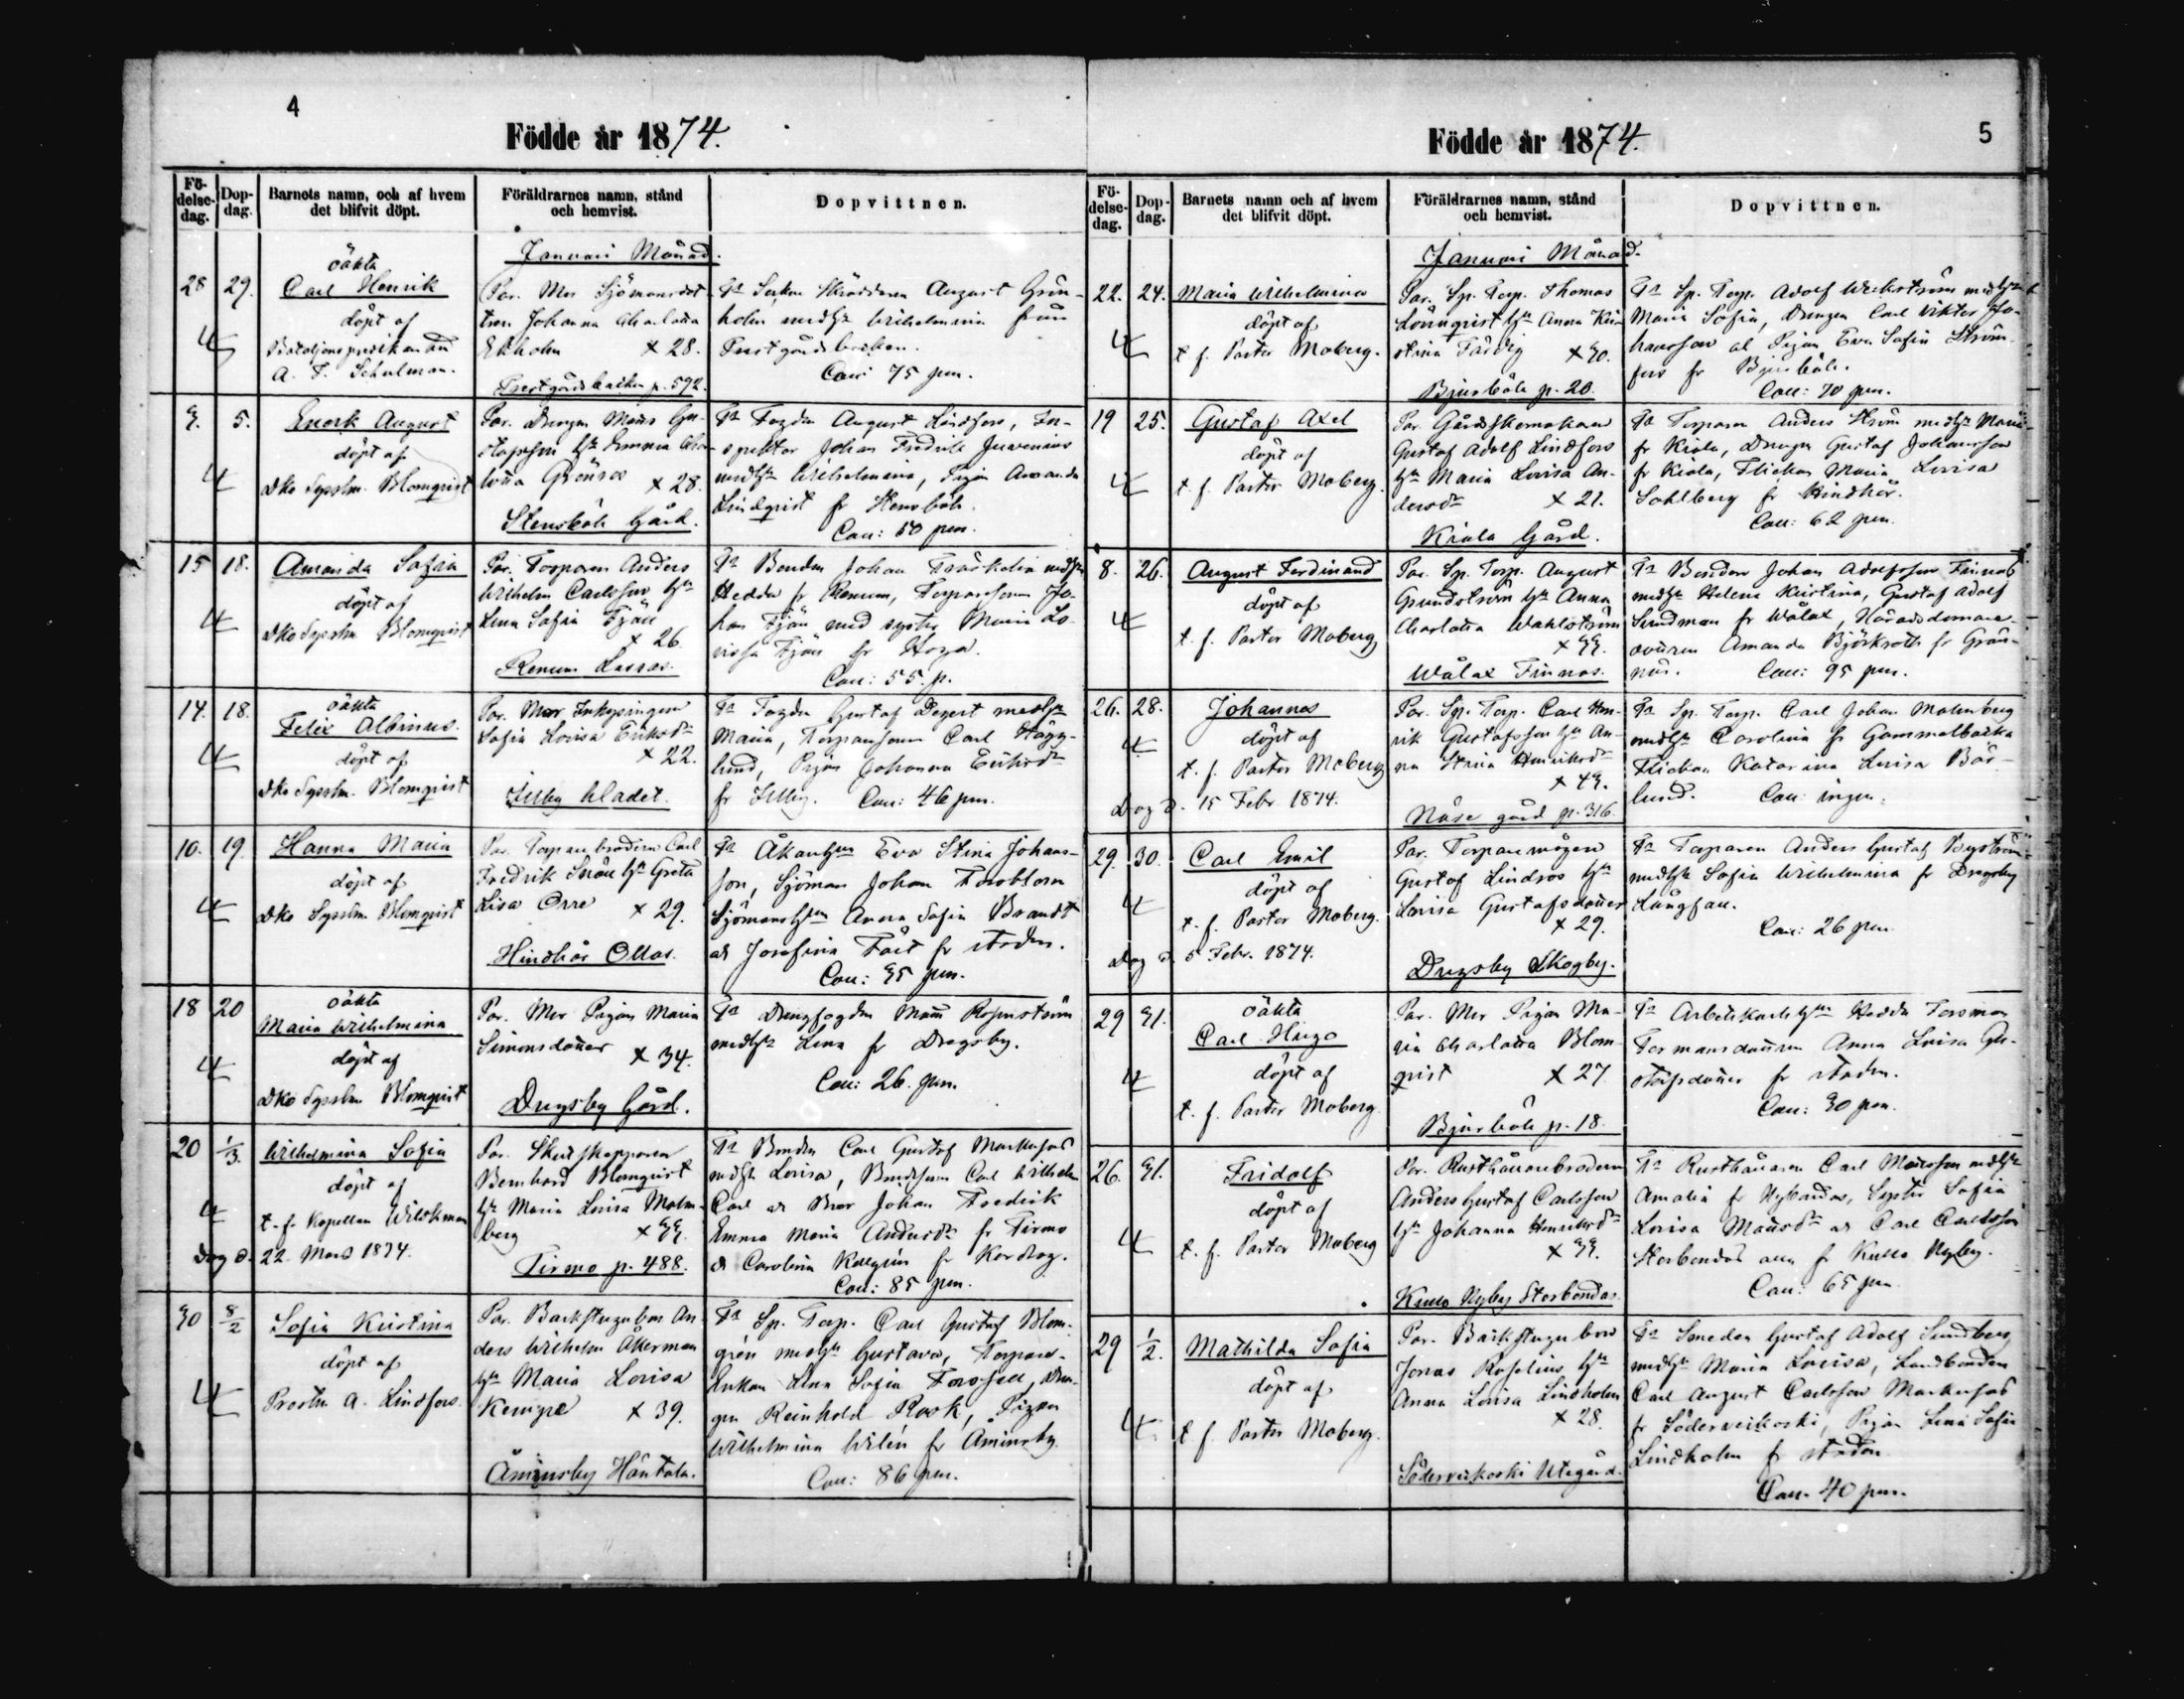 4
Födde år 1874.
Födelsedag.
Dopdag.
Barnets namn, och af hvem det blifvit döpt.
Föräldrarnes namn, stånd och hemvist.
Dopvittnen.
Januari Månad.
28 29.
oäkta
Carl Henrik
döpt af
Bataljonspredikanten
A. F. Schulman.
Par. Mor Sjömansdot-
tren Johanna Charlotta
Ekholm x 28.
Prestgårdsbacken p. 592.
August Grön-
holm medhu Wilhelmina från
Prestgårdsbacken.
Coll: 75 pen.
3. 5.
Enok August
döpt af
Dko Sysslm. Blomqvist
Par. Drengen Måns Gu-
stafsson hu Emma Char-
lotta Grönroos x 28.
Stensböle Gård.
Fa Fogden August Lindfors, In-
spektor Johan Fredrik Juvenius
medhu Wilhelmina, Pigan Amanda
Lindqvist fr Stensböle.
Coll: 50 pen.
15 18.
Amanda Sofia
döpt af
Dko Sysslm Blomqvist
Par. Torparen Anders
Wilhelm Carlsson hu
Lena Sofia Fjäll
x 26
Renum Lassas.
Fa Bonden Johan medhu
Hedda fr Renum, Torparsonen Jo-
han Fjäll med syster Maria Lo-
visa Fjäll fr
Coll: 55. p.
14. 18.
oäkta
Felix Albinus.
döpt af
Dko Sysslm. Blomqvist
Par. Mor Inhysingen
Sofia Lovisa Eriksdr
x 22.
Illby
Fa Fogden Gustaf Degert medhu
Maria, Torparsonen Carl Hägg-
lund, Pigan Johanna Eriksdr
fr Illby. Coll: 46 pen.
10. 19.
Hanna Maria
döpt af
Dko Sysslm Blomqvist
Par. Torparebrodren Carl
Fredrik hu Greta
Lisa Orre x 29.
Hindhår Ollas.
Fa Åkarehun Eva Stina Johans-
son, Sjöman Johan
Sjömanshun Anna Sofia Brandt
och Josefina fr staden.
Coll: 35 pen.
18 20
oäkta
Maria Wilhelmina
döpt af
Dko Sysslm Blomqvist
Par. Mor Pigan Maria
Simonsdotter x 34.
Drägsby Gård.
Fa Drengfogden Måns Rosenström
medhu Lena fr Drägsby.
Coll: 26. pen.
20 1/3.
Wilhelmina Sofia
döpt af
t. f. Kapellan Wilskman
Dag d. 22 Mars 1874.
Par. Skutskepparen
Bernhard Blomqvist
hu Maria Lovisa Malm-
berg x 33.
Tirmo p. 488.
Fa Bonden Carl Gustaf Markusas
medhu Lovisa, Bondesonen Carl Wilhelm
Carl och Bror Johan Fredrik
Emma Maria Andersdr fr Tirmo
& Carolina fr
Coll: 85 pen.
30 8/2
Sofia Kristina
döpt af
Prosten A. Lindfors.
Par. Backstugubon An-
ders Wilhelm Åkerman
hu Maria Lovisa
Kempe x 39.
Åminsby Häntala.
Fa Sp. Torp. Carl Gustaf Blom-
grén medhu Gustava, Torpare-
Enkan Lena Sofia Forssell, Dren-
gen Reinhold Rosk, Pigan
Wilhelmina Wilén fr Åminsby.
Coll: 86 pen.
5
Födde år 1874.
Födelsedag.
Dopdag.
Barnets namn och af hvem det blifvit döpt.
Föräldrarnes namn, stånd och hemvist.
Dopvittnen.
Januari Månad.
22. 24.
Maria Wilhelmina
döpt af
t. f. Pastor Moberg.
Par. Sp. Torp. Thomas
Lönnqvist hu Anna Kri-
stina Färdig x 30.
Bjurböle p. 20.
Fa Sp. Torp. Adolf Weckström medhu
Maria Sofia, Drengen Carl Viktor Jo-
hansson och Pigan Eva Sofia Ström-
fors fr Bjurböle.
Coll: 70 pen.
19 25.
Gustaf Axel
döpt af
t. f. Pastor Moberg.
Par. Gårdskomakaren
Gustaf Adolf Lindfors
hu Maria Lovisa An-
dersdr x 21.
Kiala Gård.
Fa Torparen Anders Ström medhu Maria
fr Kiala, Drengen Gustaf Johansson
fr Kiala, Flickan Maria Lovisa
Sahlberg fr Hindhår.
Coll: 62 pen.
8. 26.
August Ferdinand
döpt af
t. f. Pastor Moberg
Par. Sp. Torp. August
Grundström hu Anna
Charlotta Wahlström
x 33.
Wålax Finnas.
Fa Bonden Johan Adolfsson Finnas
medhu Helena Kristina, Gustaf Adolf
Sundman fr Wålax, Häradsdomare-
dottren Amanda Björkroth fr Grän-
näs. Coll: 95 pen.
26. 28.
Johannes
döpt af
t. f. Pastor Moberg
Dog d. 15 Febr 1874.
Par. Sp. Torp. Carl Hen-
rik Gustafsson hu An-
na Stina Henriksdr
x 43.
Näse gård p. 316.
Fa Sp. Torp. Carl Johan Malmberg
medhu Carolina fr Gammelbacka
Flickan Katarina Lovisa Bäs-
lund. Coll: ingen.
29. 30.
Carl Emil
döpt af
t. f. Pastor Moberg.
Dog d. 5 Febr. 1874.
Par. Torparemågen
Gustaf Lindroos hu
Lovisa Gustafsdotter
x 29.
Drägsby Skogby.
Fa Torparen Anders Gustaf Byström
medhu Sofia Wilhelmina fr Drägsby
Långfall.
Coll: 26 pen.
29 31.
oäkta
Carl Hugo
döpt af
t. f. Pastor Moberg.
Par. Mor Pigan Ma-
ria Charlotta Blom-
qvist x 27
Bjurböle p. 18.
Fa Arbetskarlshun Hedda Forsman
Formansdottren Anna Lovisa Gu-
stafsdotter fr staden.
Coll: 30 pen.
26. 31.
Fridolf
döpt af
t. f. Pastor Moberg
Par. Rusthållarebrodren
Anders Gustaf Carlsson
hu Johanna Henriksdr
x 33.
Kullo Nyby Storbondas.
Fa Rusthållaren Carl Månsson medhu
Amalia fr Nybondas, Syster Sofia
Lovisa Månsdr och Carl Carlsson
Storbondas alla fr Kullo Nyby.
Coll: 65 pen
29 1/2.
Mathilda Sofia
döpt af
t. f. Pastor Moberg.
Par. Backstugubon
Jonas Roselius hu
Anna Lovisa Lindholm
x 28.
Söderveikoski Utegård.
Fa Smeden Gustaf Adolf Sundberg
medhu Maria Lovisa, Landbonden
Carl August Carlsson Markusas
fr Söderveikoski, Pigan Lena Sofia
Lindholm fr staden.
Coll. 40 pen.